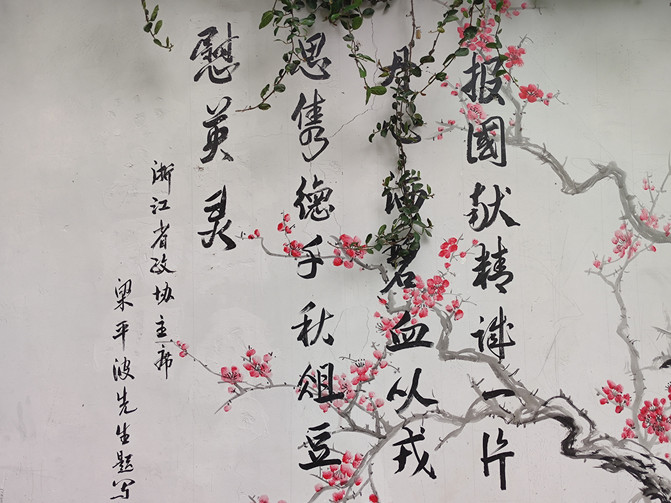 报國献精诚一片
丹碧血从戎
思隽德千秋俎豆
慰英灵
浙江省政协主席
梁平波先生题写